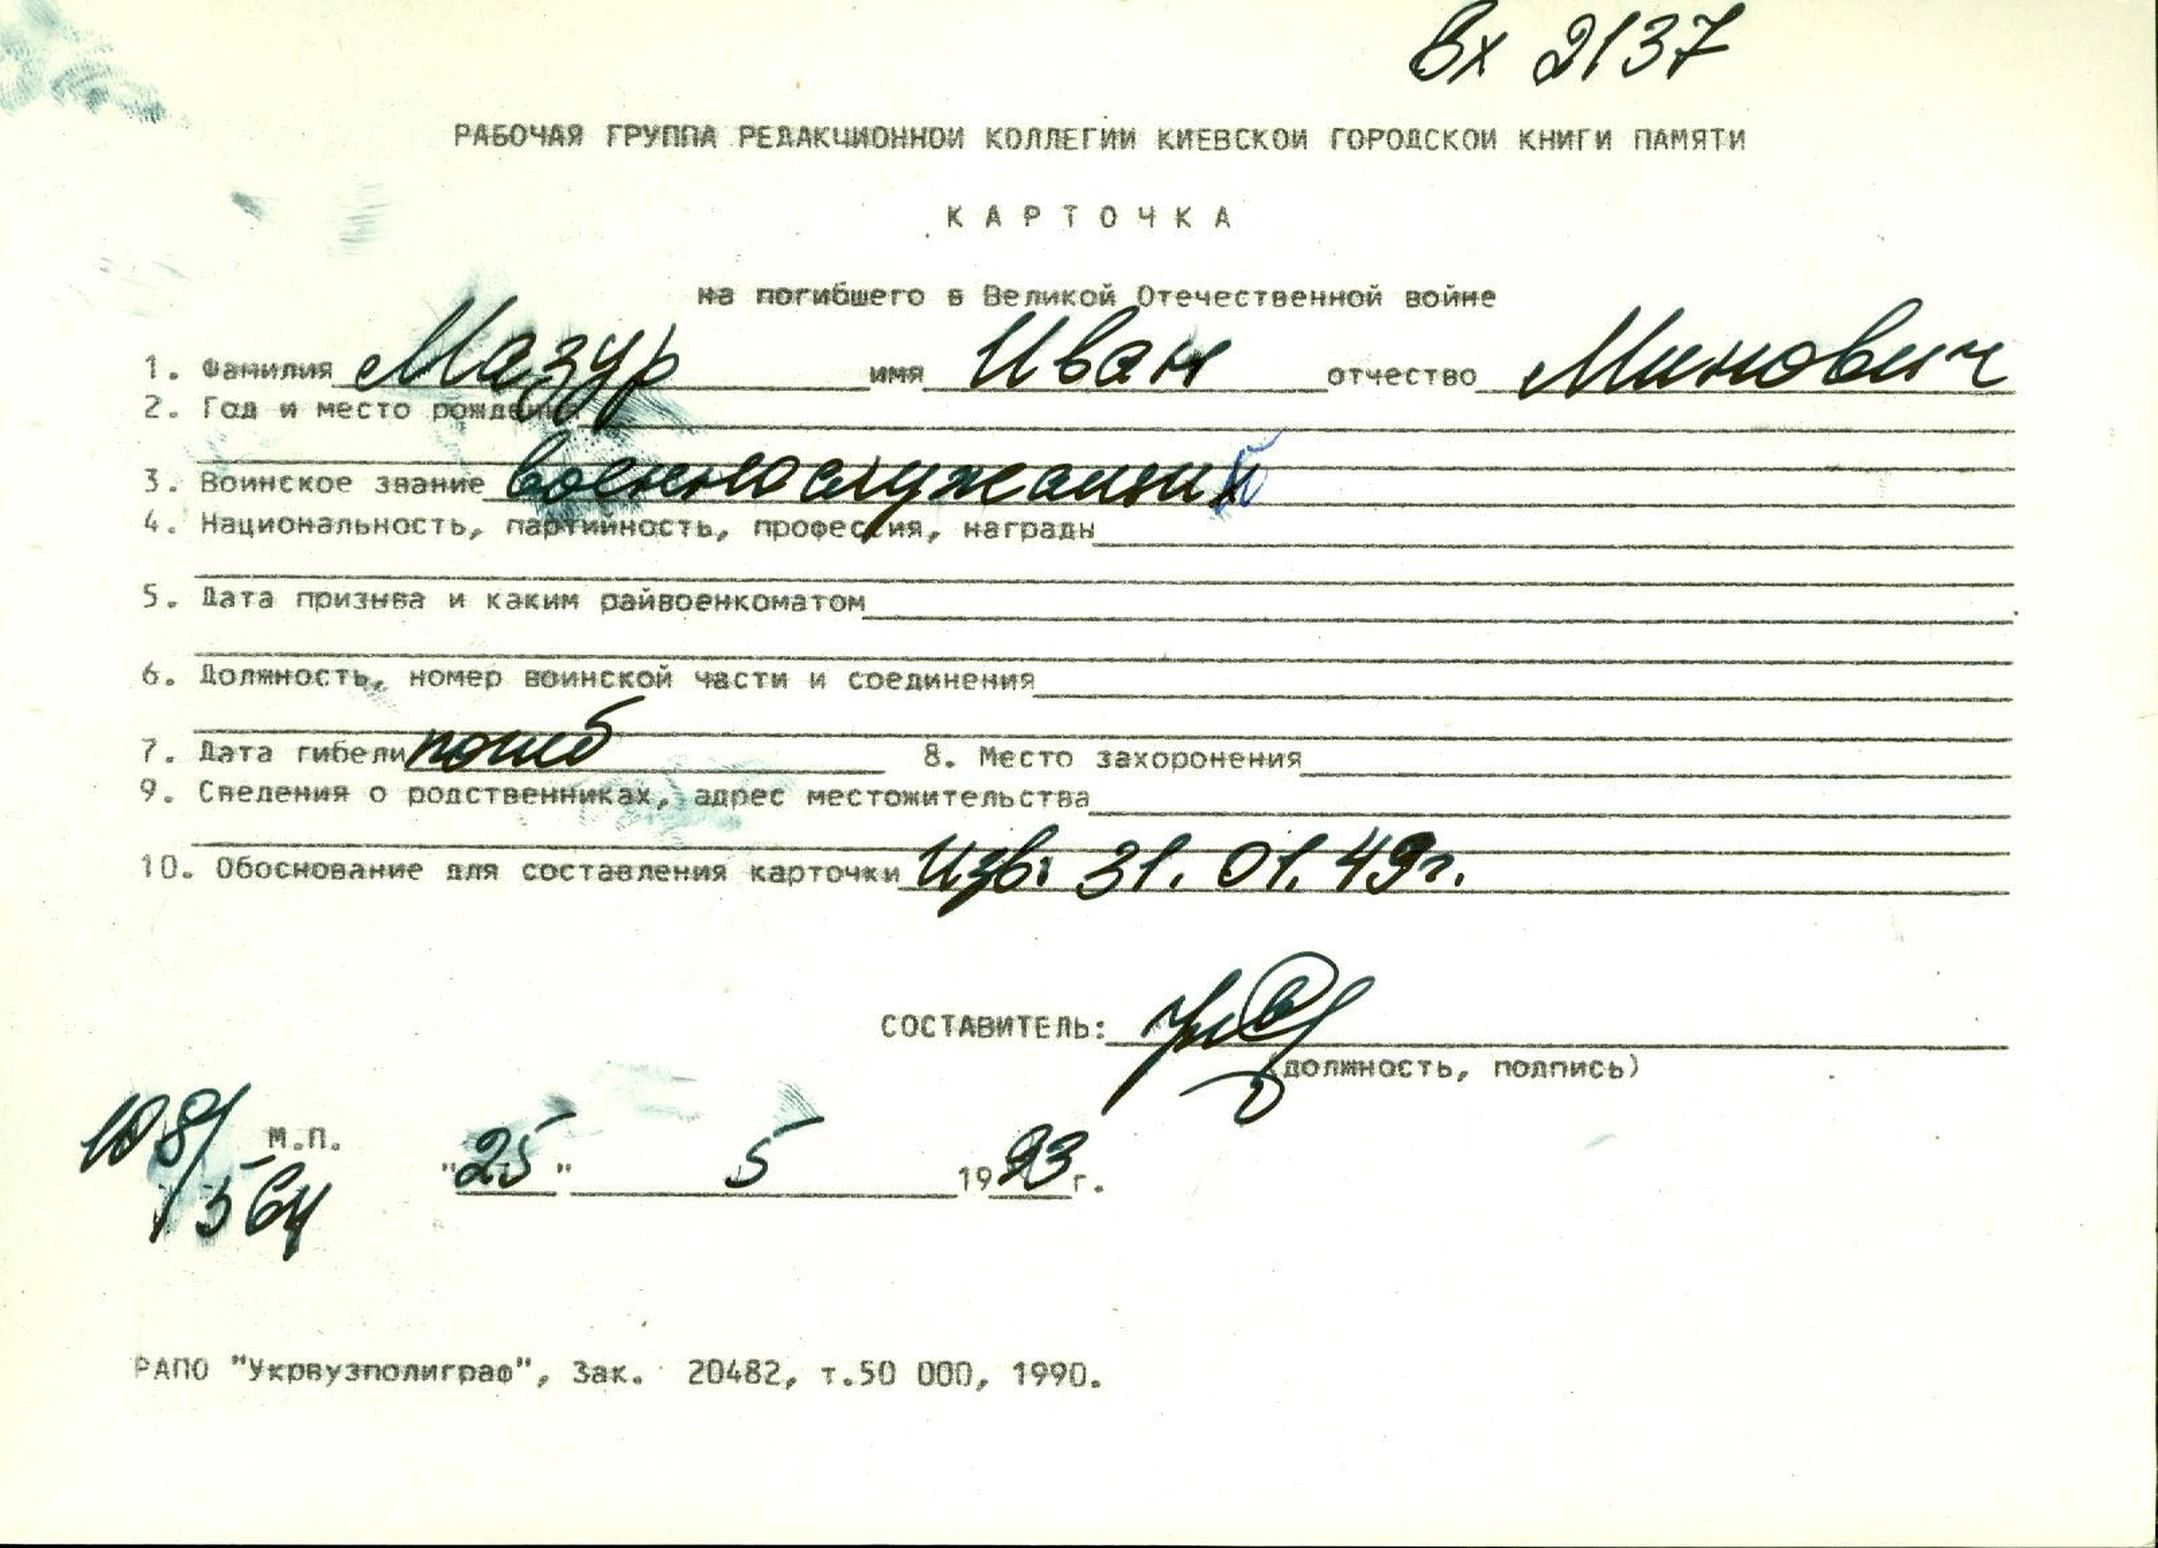 Вх 2137
РАБОЧАЯ ГРУППА РЕДАКЦИОННОЙ КОЛЛЕГИИ КИЕВСКОЙ ГОРОДСКОЙ КНИГИ ПАМЯТИ
КАРТОЧКА
на погибшего в Великой Отечественной войне
1. Фамилия Мазур имя Иван отчество Минович
2. Год и место рождения
3. Воинское звание военнослужащий
4. Национальность, партийность, профессия, награды
5. Дата призыва и каким райвоенкоматом
6. Должность, номер воинской части и соединения
7. Дата гибели погиб 8. Место захоронения
9. Сведения о родственниках, адрес местожительства
10. Обоснование для составления карточки Изв: 31.01.49г.
СОСТАВИТЕЛЬ:
(должность, подпись)
108/
М.П.
"25" 5 1993 г.
564
РАПО "Укрвузполиграф", Зак. 20482, т.50 000, 1990.